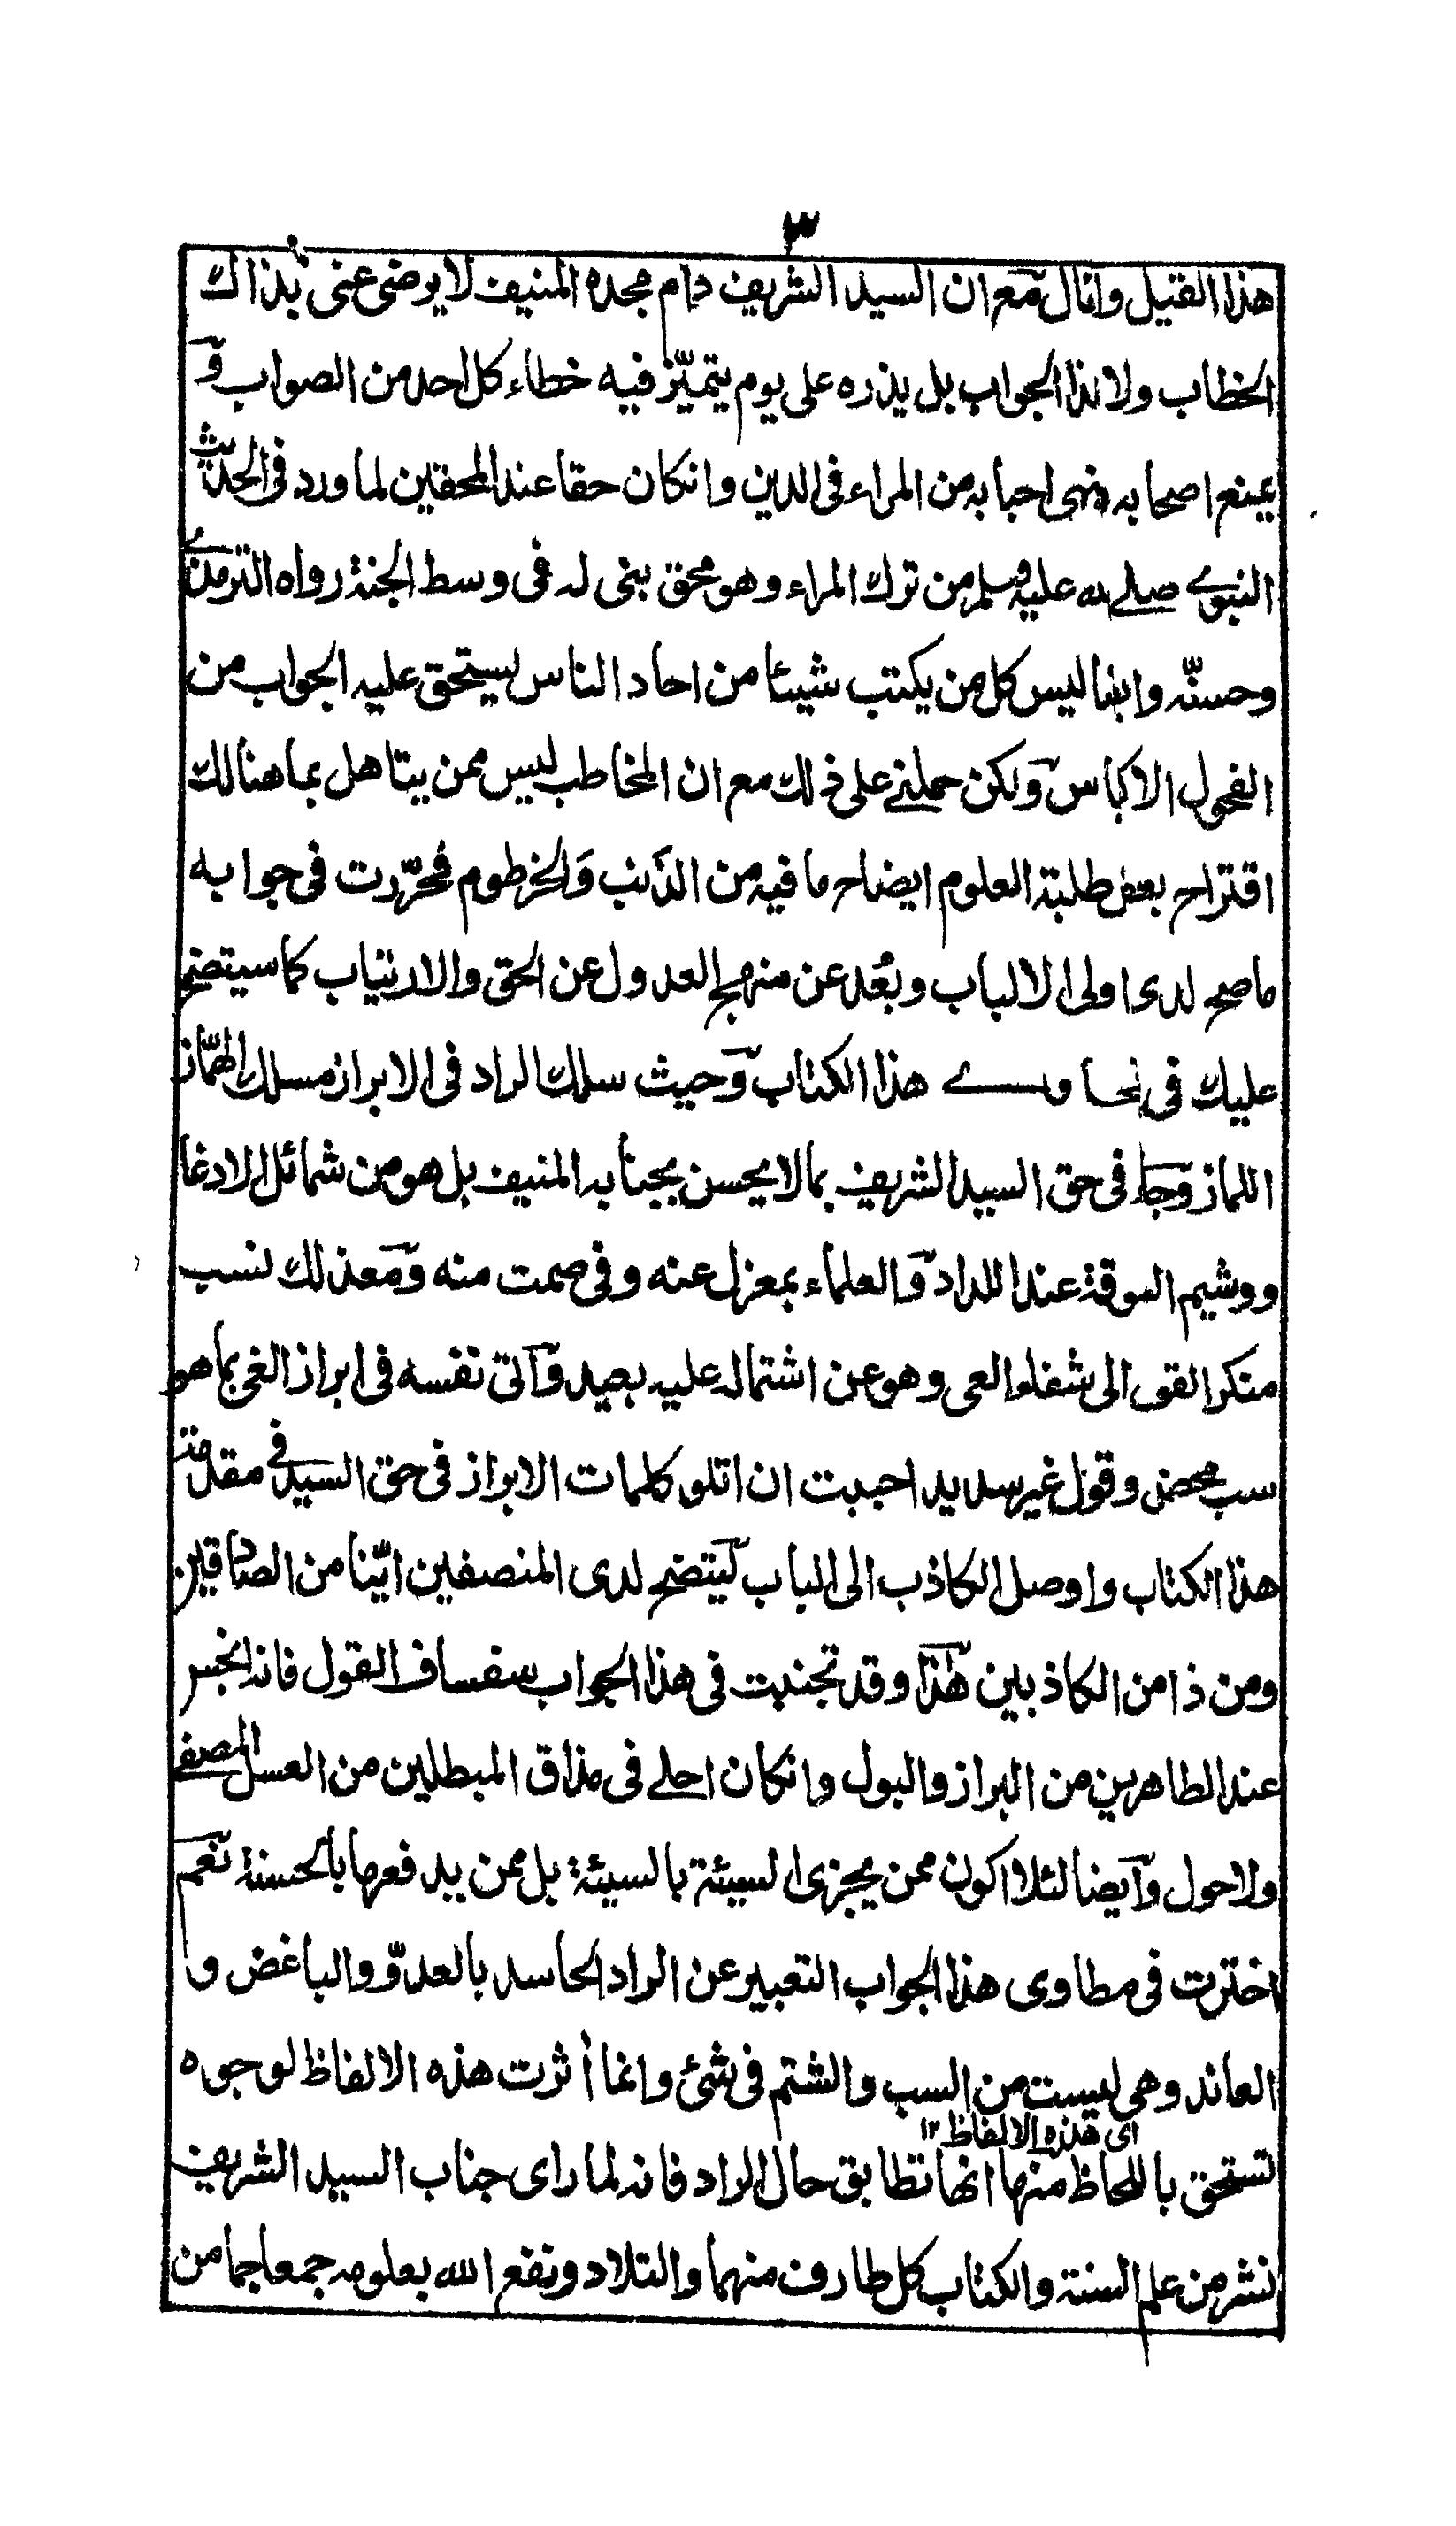 ٣
هذا القتيل وانال مع ان السيد الشريف دام مجده المنيف لا يرضى عنى بذاك
الخطاب ولا بذا الجواب بل يذره على يوم يتميّز فيه خطاء كل احد من الصواب و
يمنع اصحابه وينهى احبابه من المراء فى الدين وانكان حقا عند المحقين لما ورد فى الحديث
النبوے صلے الله عليه وسلم من ترك المراء وهو محق بنى له فى وسط الجنة رواه الترمذے
وحسنّه وايضا ليس كل من يكتب شيئا من احاد الناس يستحق عليه الجواب من
الفحول الاكياس ولكن حملنے على ذلك مع ان المخاطب ليس ممن يتاهل بما هنالك
اقتراح بعض طلبة العلوم ايضاح ما فيه من الذنب والخرطوم فحرّرت فى جوابه
ما صح لدى اولى الالباب وبعُد عن منهج العدول عن الحق والارتياب كما سيتضح
عليك فى نحاوے هذا الكتاب وحيث سلك الراد فى الابراز مسلك الهمّاز
اللماز وجاء فى حق السيد الشريف بما لا يحسن بجنابه المنيف بل هو من شمائل الادغا
ووشيم السوقة عند اللداد والعلماء بمعزل عنه وفى صمت منه ومع ذلك نسب
منكر القول الى شفاء العى وهو عن اشتماله عليه بعيد واتى نفسه فى ابراز الغى بما هو
سب محض وقول غير سديد احببت ان اتلو كلمات الابراز فى حق السيد فى مقدمة
هذا الكتاب واوصل الكاذب الى الباب ليتضح لدى المنصفين ايّنا من الصادقين
ومن ذا من الكاذبين هٰذا وقد تجنبت فى هذا الجواب سفساف القول فانه انجس
عند الطاهرين من البراز والبول وانكان احلے فى مذاق المبطلين من العسل المصفے
ولا حول وايضا لئلا اكون ممن يجزى السيئة بالسيئة بل ممن يدفعها بالحسنة نعم
اخترت فى مطاوى هذا الجواب التعبير عن الراد الحاسد بالعدوّ والباغض و
العاند وهى ليست من السب والشتم فى شئ وانما أثرت هذه الالفاظ لوجوه
اى هذه الالفاظ ١٢
تستحق باللحاظ منها انها تطابق حال الراد فانه لما راى جناب السيد الشريف
نشر من علم السنة والكتاب كل طارف منهما والتلاد ونفع الله بعلومه جمعا جما من